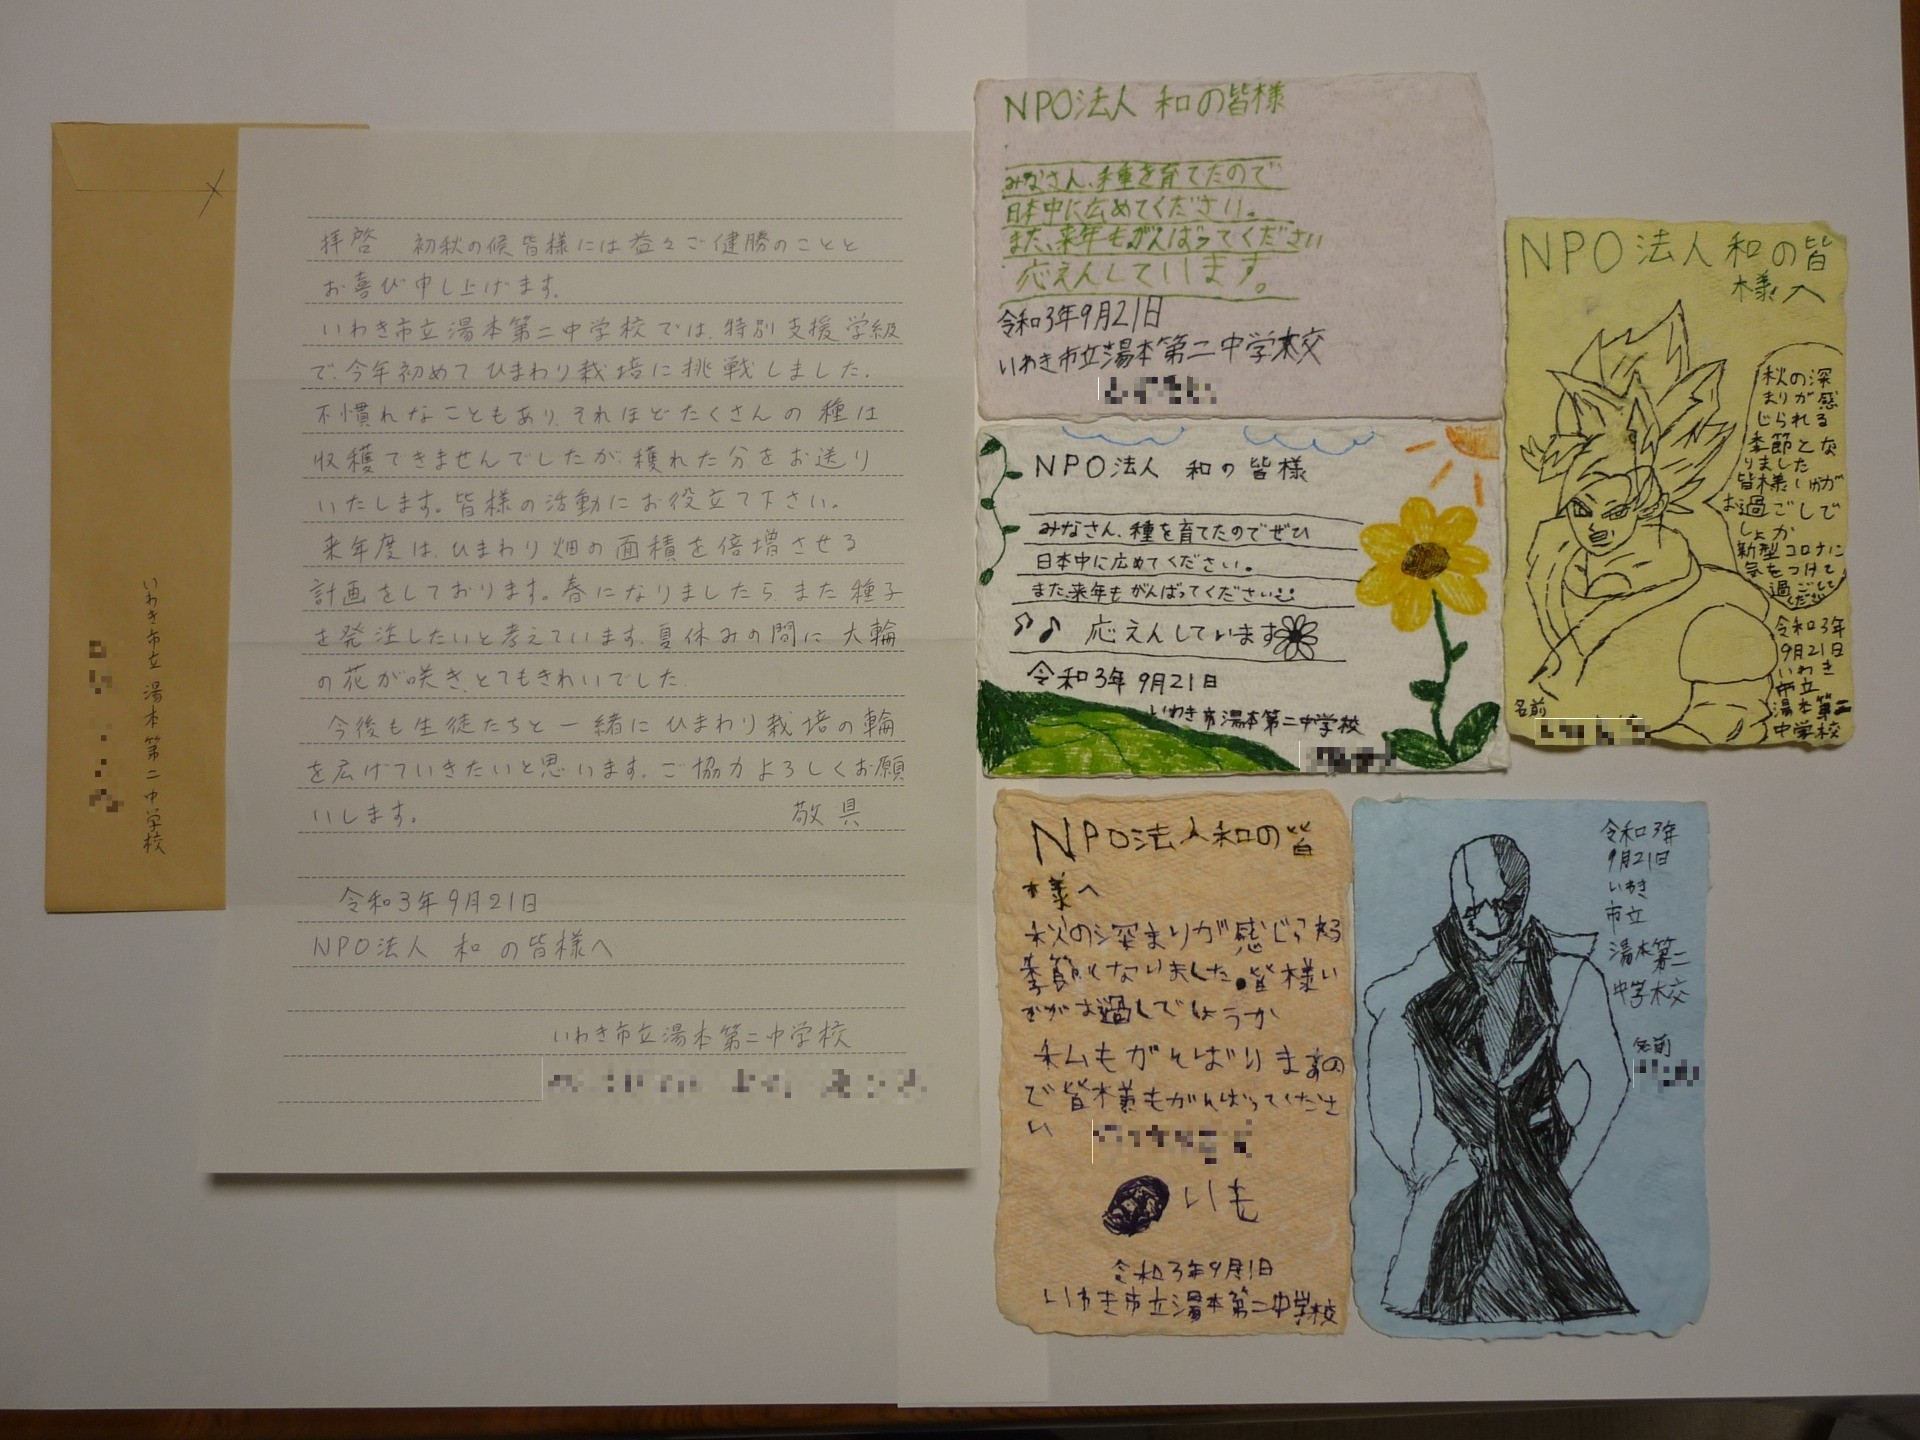 いわき市立 湯本第二中学校
拝啓 初秋の候皆様には益々ご健勝のことと
お喜び申し上げます。
いわき市立湯本第二中学校では、特別支援学級
で、今年初めてひまわり栽培に挑戦しました。
不慣れなこともあり、それほどたくさんの種は
収穫できませんでしたが、穫れた分をお送り
いたします。皆様の活動にお役立て下さい。
来年度は、ひまわり畑の面積を倍増させる
計画をしております。春になりましたらまた種子
を発注したいと考えています。夏休みの間に大輪
の花が咲き、とてもきれいでした。
今後も生徒たちと一緒にひまわり栽培の輪
を広げていきたいと思います。ご協力よろしくお願
いします。 敬具
令和3年9月21日
NPO法人 和の皆様へ
いわき市立湯本第二中学校
NPO法人 和の皆様
みなさん、種を育てたので
日本中に広めてください。
また、来年もがんばってください
応えんしています。
令和3年9月21日
いわき市立湯本第二中学校
NPO法人 和の皆様
みなさん、種を育てたのでぜひ
日本中に広めてください。
また、来年もがんばってください
♫♪ 応えんしています
令和3年9月21日
いわき市湯本第二中学校
NPO法人和の皆
様へ
秋の深
まりが感
じられる
季節とな
りました
皆様いかが
お過ごしで
しょか
新型コロナに
気をつけて
過ごして
ください
令和3年
9月21日
いわき
市立
湯本第二
中学校
名前
NPO法人和の皆
様へ
秋の深まりが感じられる
季節となりました。皆様い
かがお過しでしょうか
私もがんばりますの
で皆様もがんばってくださ
い
いも
令和3年9月21日
いわき市立湯本第二中学校
令和3年
9月21日
いわき
市立
湯本第二
中学校
名前